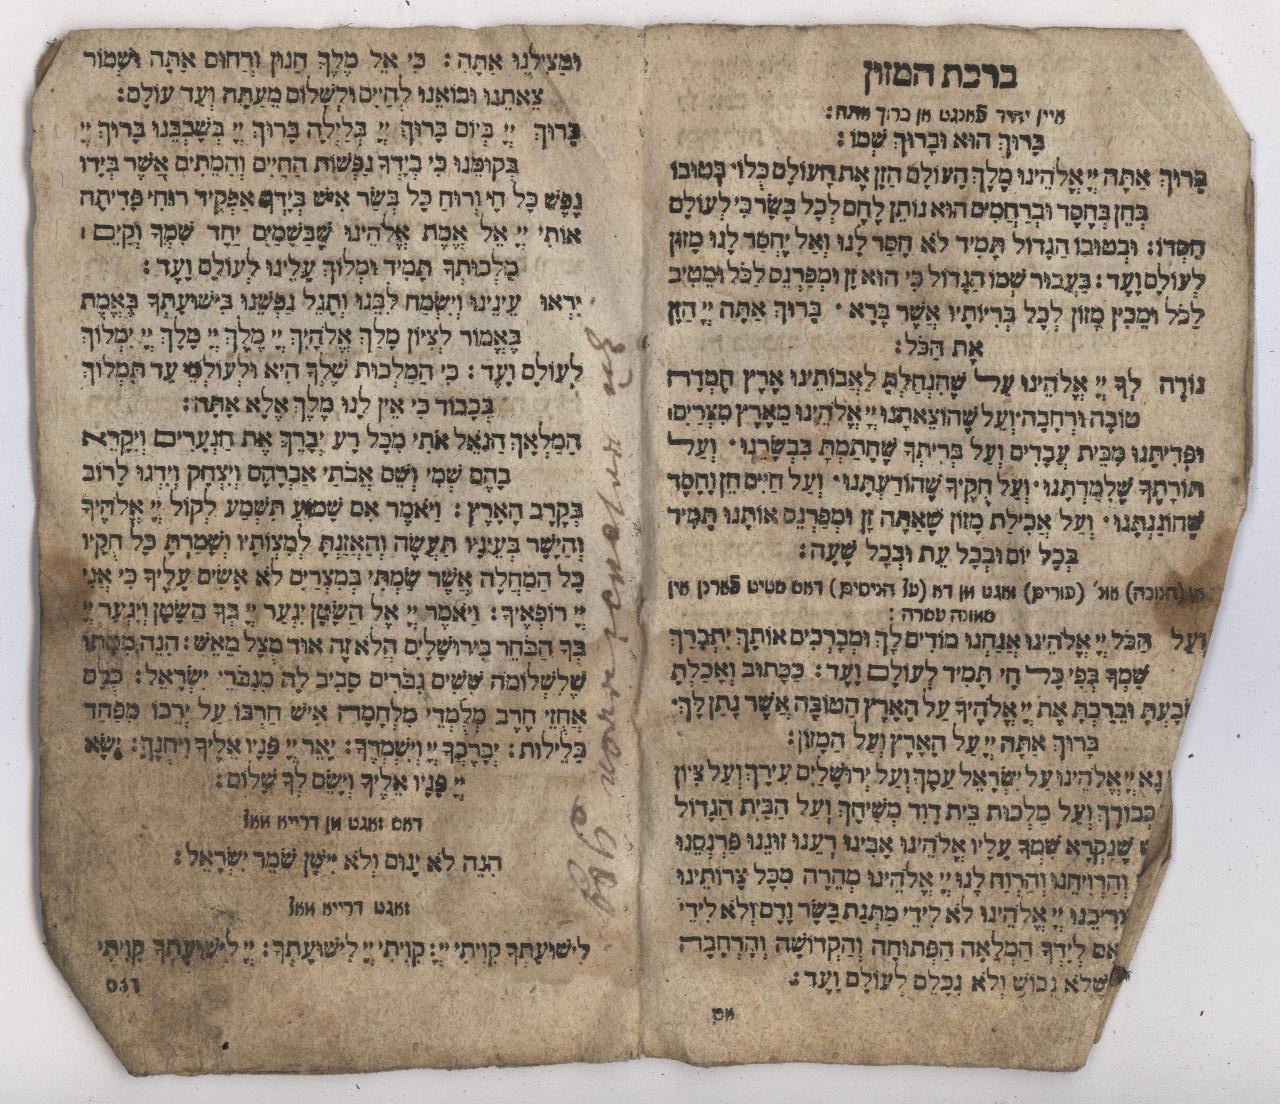 ברכת המזון
איין יחיד פאנגט אן ברוך אתה:
ברוך הוא וברוך שמו:
ברוך אתה יי אלהינו מלך העולם הזן את העולם כלו בטובו
בחן בחסד וברחמים הוא נותן לחם לכל בשר כי לעולם
חסדו: ובטובו הגדול תמיד לא חסר לנו ואל יחסר לנו מזון
לעולם ועד: בעבור שמו הגדול כי הוא זן ומפרנס לכל ומטיב
לכל ומכין מזון לכל בריותיו אשר ברא · ברוך אתה יי הזן
את הכל:
נודה לך יי אלהינו על שהנחלת לאבותינו ארץ חמדה
טובה ורחבה ועל שהוצאתנו יי אלהינו מארץ מצרים
ופדיתנו מבית עבדים ועל בריתך שחתמת בבשרנו · ועל
תורתך שלמדתנו · ועל חקיך שהודעתנו · ועל חיים חן וחסד
שחוננתנו · ועל אכילת מזון שאתה זן ומפרנס אותנו תמיד
בכל יום ובכל עת ובכל שעה:
(חנוכה) אונ׳ (פורים) זאגט מן דא (על הניסים) דאס שטיט פארנן אין
שמונה עשרה :
ועל הכל יי אלהינו אנחנו מודים לך ומברכים אותך יתברך
שמך בפי כל חי תמיד לעולם ועד: ככתוב ואכלת
ושבעת וברכת את יי אלהיך על הארץ הטובה אשר נתן לך ·
ברוך אתה יי על הארץ ועל המזון:
נא יי אלהינו על ישראל עמך ועל ירושלים עירך ועל ציון
כבודך ועל מלכות בית דוד משיחך ועל הבית הגדול
שנקרא שמך עליו אלהינו אבינו רענו זוננו פרנסנו
והרויחנו והרוח לנו יי אלהינו מהרה מכל צרותינו
צריכנו יי אלהינו לא לידי מתנת בשר ודם ולא לידי
אם לידך המלאה הפתוחה והקדושה והרחבה
שלא נבוש ולא נכלם לעולם ועד:
ומצילנו אתה: כי אל מלך חנון ורחום אתה ושמור
צאתנו ובואנו לחיים ולשלום מעתה ועד עולם:
ברוך יי ביום ברוך יי בלילה ברוך יי בשכבנו ברוך יי
בקומנו כי בידך נפשות החיים והמתים אשר בידו
נפש כל חי ורוח כל בשר איש בידך אפקיד רוחי פדיתה
אותי יי אל אמת אלהינו שבשמים יחד שמך וקים :
מלכותך תמיד ומלוך עלינו לעולם ועד:
יראו עינינו וישמח לבנו ותגל נפשנו בישועתך באמת
באמור לציון מלך אלהיך יי מלך יי מלך יי ימלוך
לעולם ועד: כי המלכות שלך היא ולעולמי עד תמלוך
בכבוד כי אין לנו מלך אלא אתה:
המלאך הגואל אתי מכל רע יברך את הנערים ויקרא
בהם שמי ושם אבתי אברהם ויצחק וידגו לרוב
בקרב הארץ: ויאמר אם שמוע תשמע לקול יי אלהיך
והישר בעיניו תעשה והאזנת למצותיו ושמרת כל חקיו
כל המחלה אשר שמתי במצרים לא אשים עליך כי אני
יי רופאיך: ויאמר יי אל השטן יגער יי בך השטן ויגער יי
בך הבחר בירושלים הלא זה אוד מצל מאש: הנה מטתו
שלשלומה ששים גבורים סביב לה מגבורי ישראל: כלם
אחזי חרב מלמדי מלחמה איש חרבו על ירכו מפחד
בלילות: יברכך יי וישמרך: יאר יי פניו אליך ויחנך: ישא
יי פניו אליך וישם לך שלום:
דאס זאגט מן דרייא מאל
הנה לא ינום ולא יישן שומר ישראל:
זאגט דרייא מאל
לישועתך קויתי יי: קויתי יי לישועתך: יי לישועתך קויתי